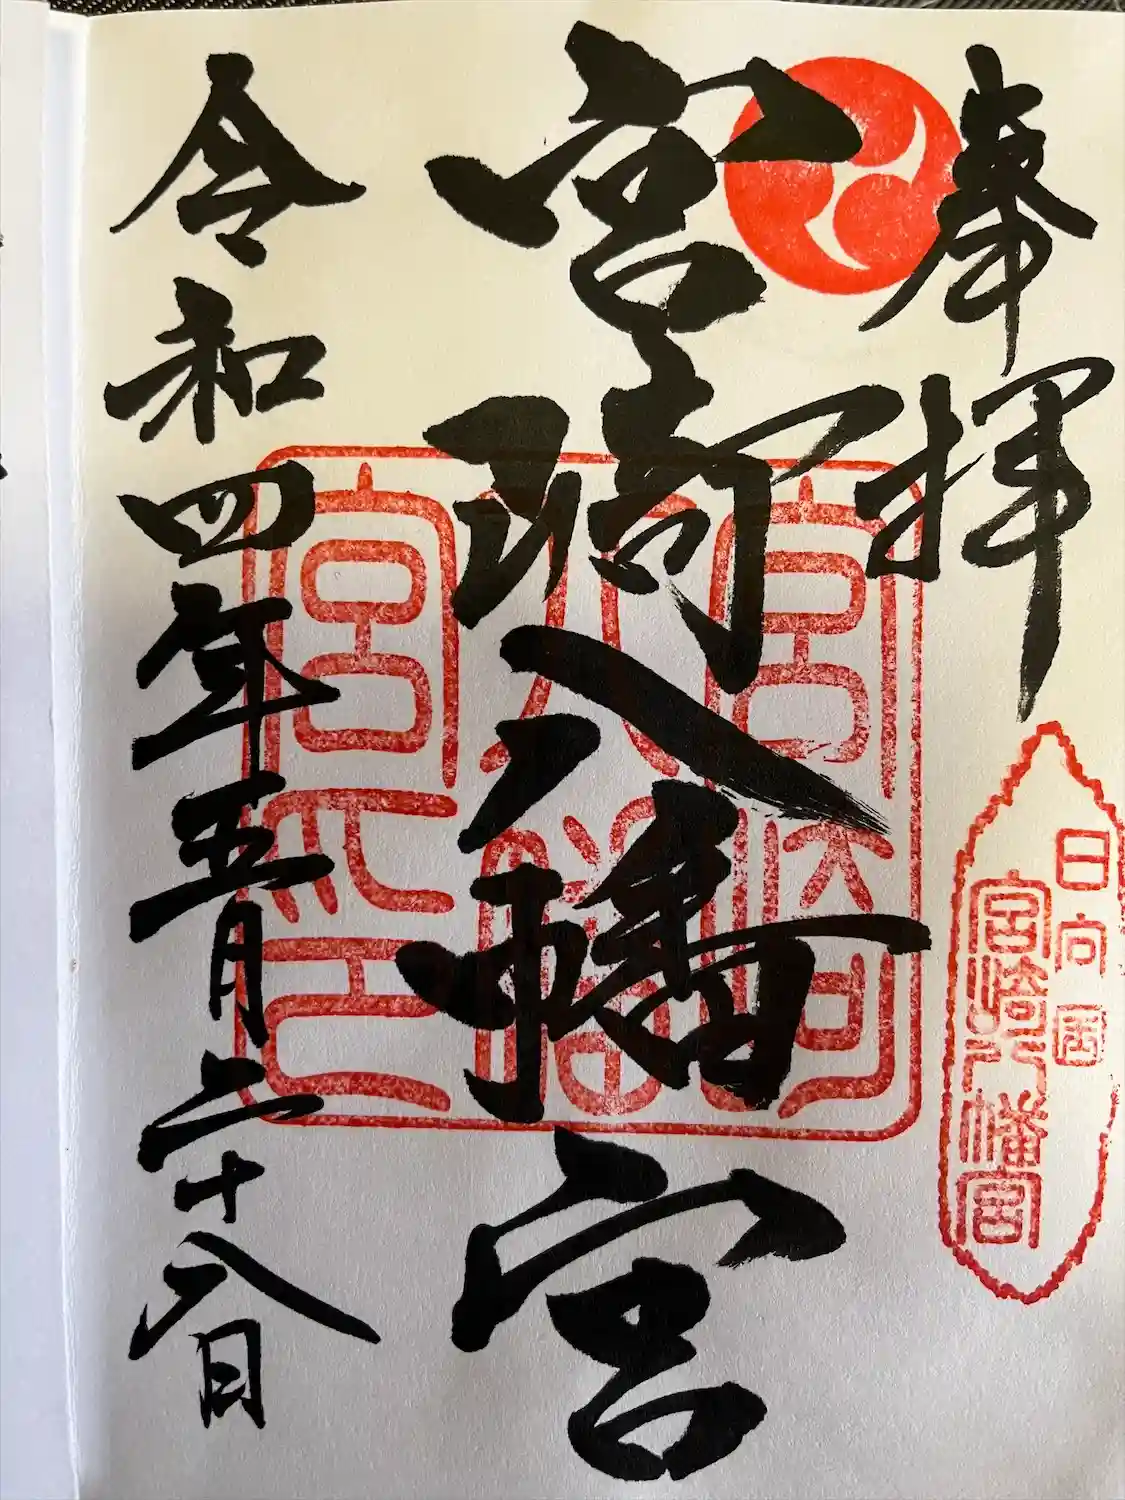 奉拝
日向国
宮崎八幡宮
宮崎八幡宮
宮崎
八幡
宮之印
令和四年五月二十八日